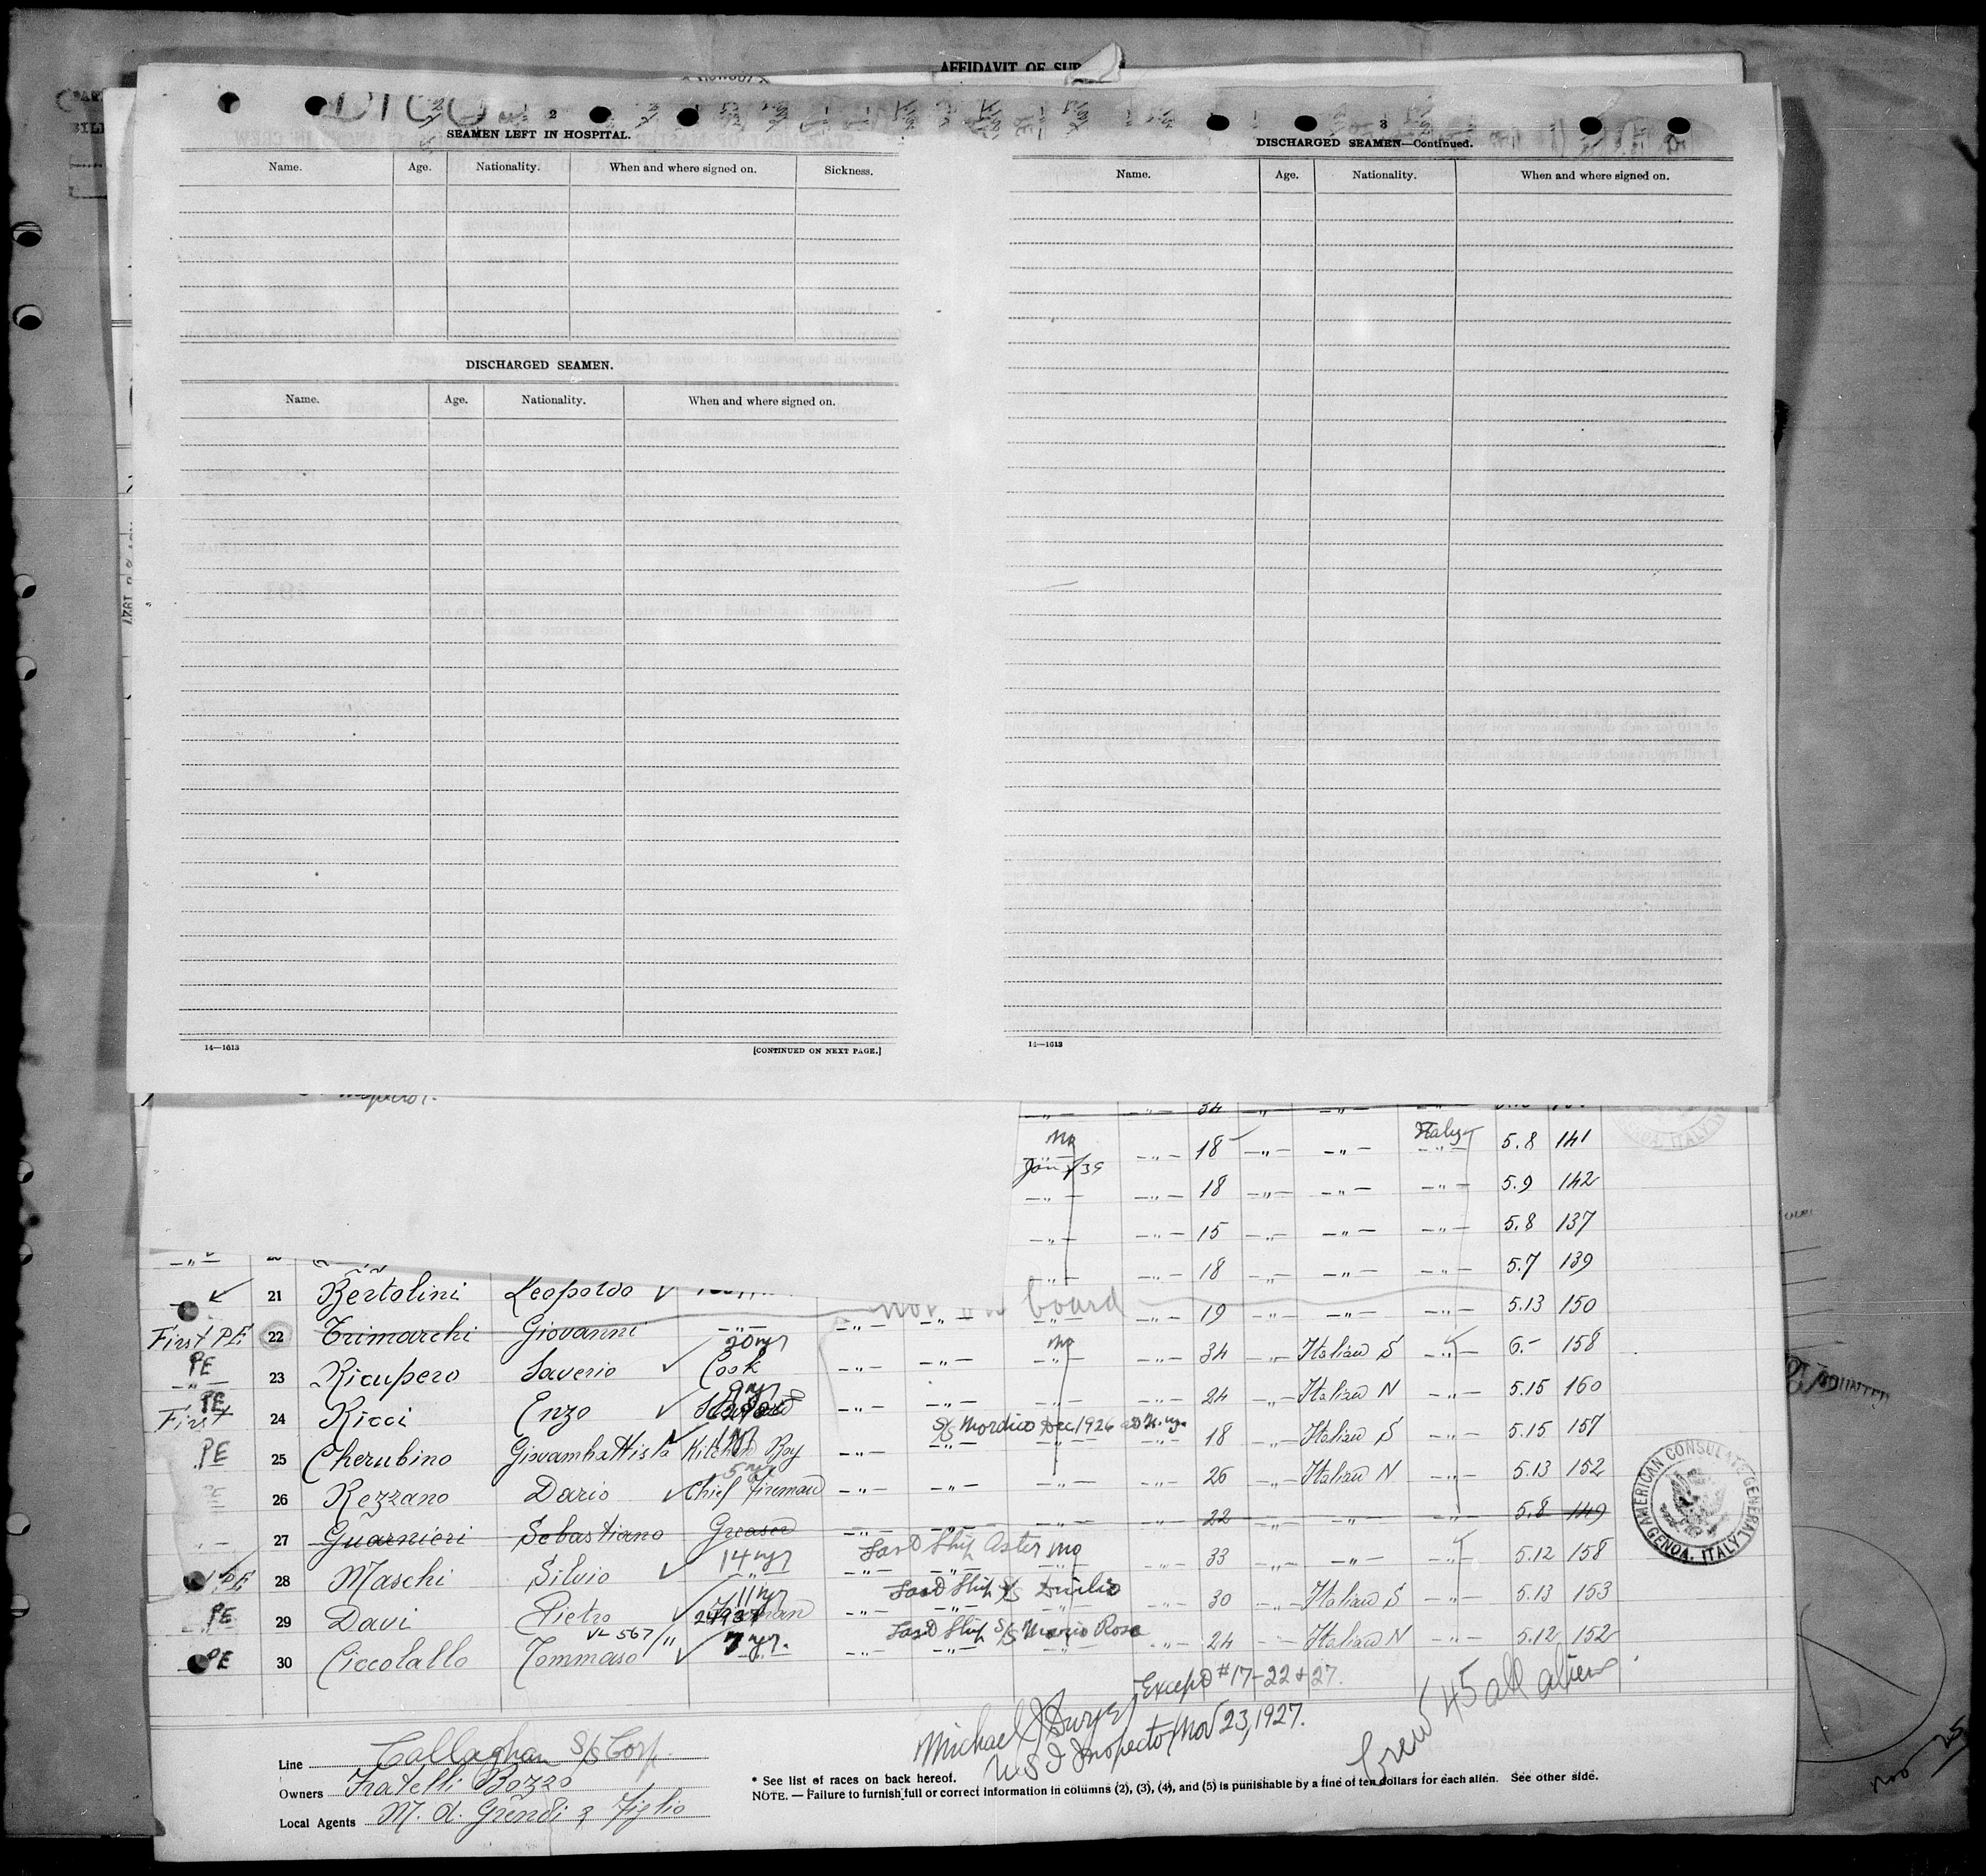 AFFIDAVIT OF SUR
2
SEAMEN LEFT IN HOSPITAL.
Name. Age. Nationality. When and where signed on. Sickness.
DISCHARGED SEAMEN.
Name. Age. Nationality. When and where signed on.
14—1613 [CONTINUED ON NEXT PAGE.]
3
DISCHARGED SEAMEN—Continued.
Name. Age. Nationality. When and where signed on.
14—1613
Italy
18 5.8 141
18 5.9 142
15 5.8 137
18 5.7 139
21 Bertolini Leopoldo 19 5.13 150
not on board
First PE 22 Trimarchi Giovanni 34 Italian S 6.- 158
20 yrs
PE 23 Ricupero Saverio Cook 24 Italian N 5.15 160
9 yrs
PE First 24 Ricci Enzo 18 Italian S 5.15 157
S/S Nordico Dec. 1926
PE 25 Cherubino Giovambattista Kitchen Boy 26 Italian N 5.13 152
5 yrs
PE 26 Rezzano Dario Chief Fireman 22 5.8 149
27 Guarnieri Sebastiano Greaser 33 5.12 158
14 yrs Last Ship Aster
PE 28 Maschi Silvio 30 Italian S 5.13 153
11 yrs Last Ship S/S Duilio
PE 29 Davi Pietro Fireman 24 Italian N 5.12 152
VL 567/11 7 yrs. Last Ship S/S Maria Rosa
PE 30 Ciccolallo Tommaso
Except #17-22+27.
Michael J Dwyer
US I Inspector Nov 23, 1927.
Crew 45 all aliens
Line Callaghan S/S Corp.
Owners Fratelli Bozzo
Local Agents M. A. Grendi & Figlio
* See list of races on back hereof.
NOTE. — Failure to furnish full or correct information in columns (2), (3), (4), and (5) is punishable by a fine of ten dollars for each alien. See other side.
AMERICAN CONSULATE GENERAL
GENOA, ITALY